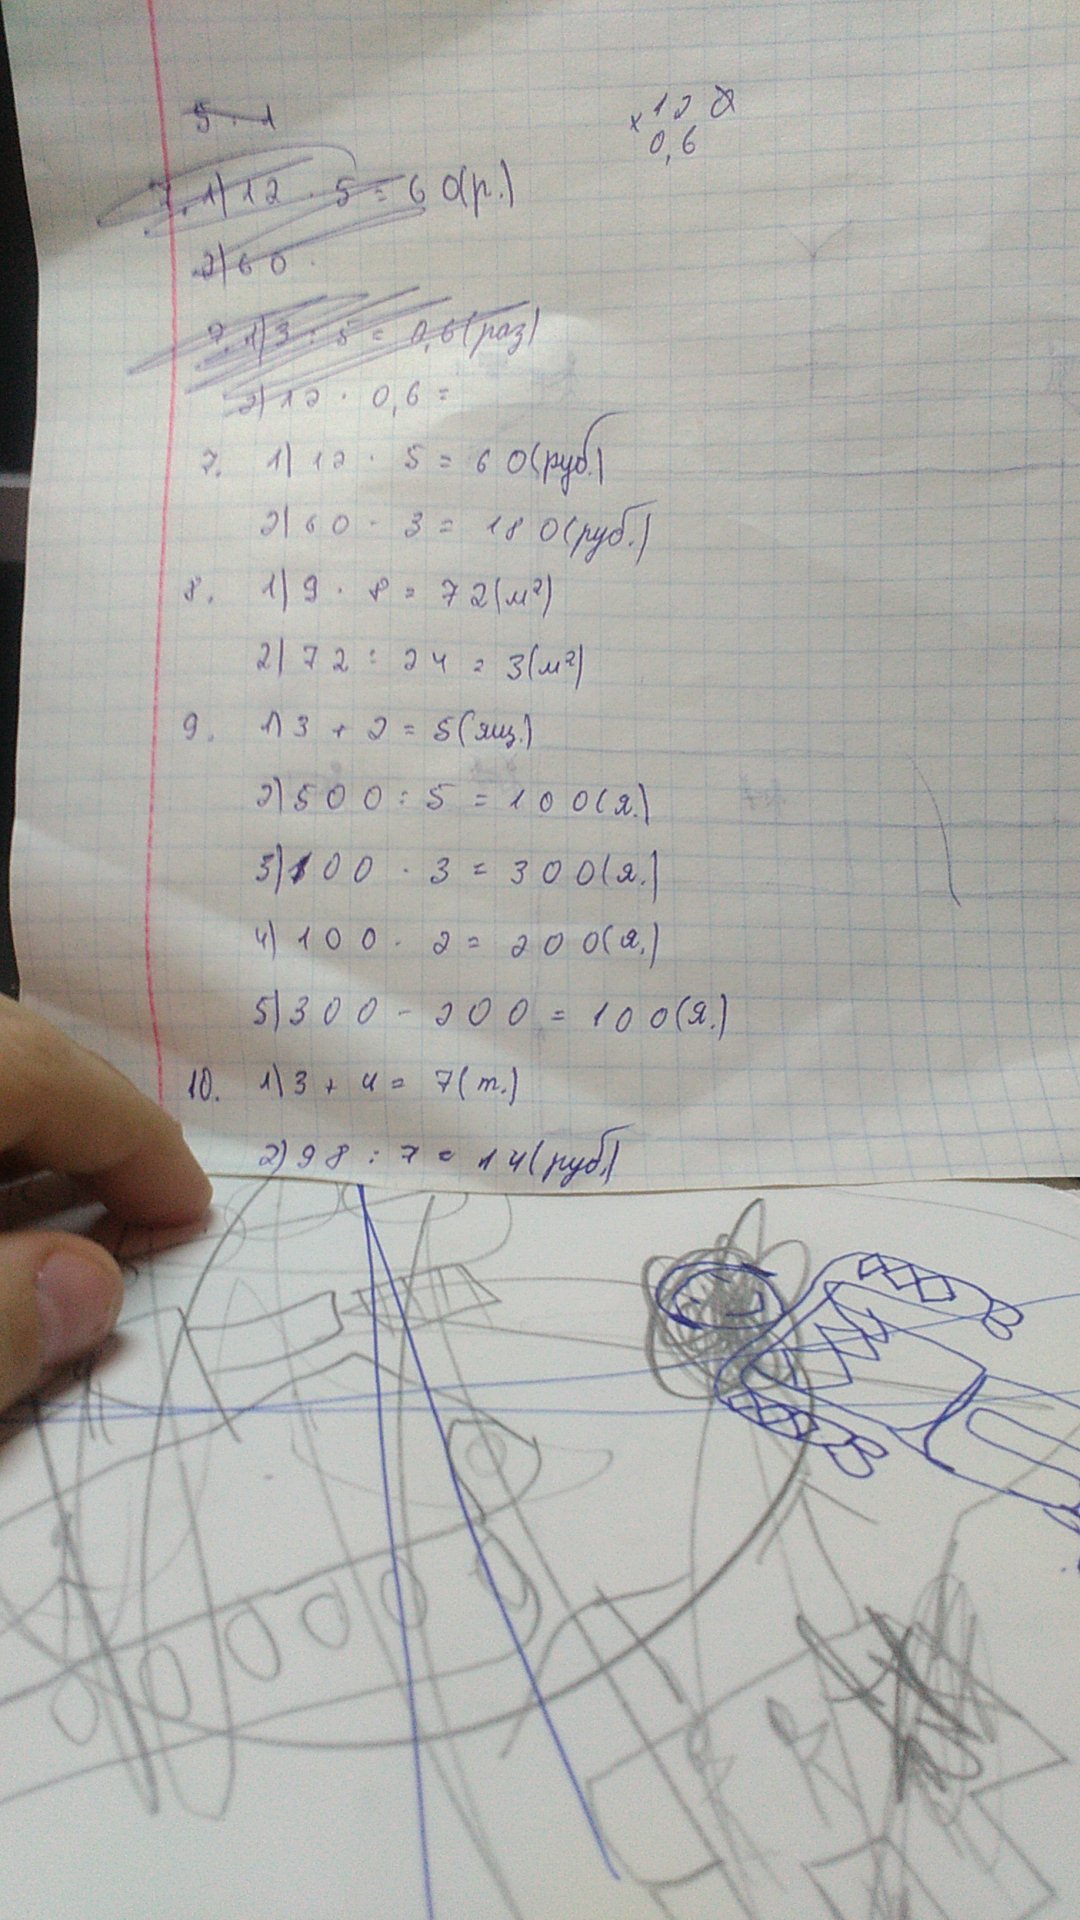 5 · 1
× 12
0,6
7. 1) 12 · 5 = 60(р.)
2) 60 ·
7. 1) 3 : 5 = 0,6(раз)
2) 12 · 0,6 =
7. 1) 12 · 5 = 60(руб.)
2) 60 · 3 = 180(руб.)
8. 1) 9 · 8 = 72(м²)
2) 72 : 24 = 3(м²)
9. 1) 3 + 2 = 5(ящ.)
2) 500 : 5 = 100(я.)
3) 100 · 3 = 300(я.)
4) 100 · 2 = 200(я.)
5) 300 - 200 = 100(я.)
10. 1) 3 + 4 = 7(т.)
2) 98 : 7 = 14(руб.)